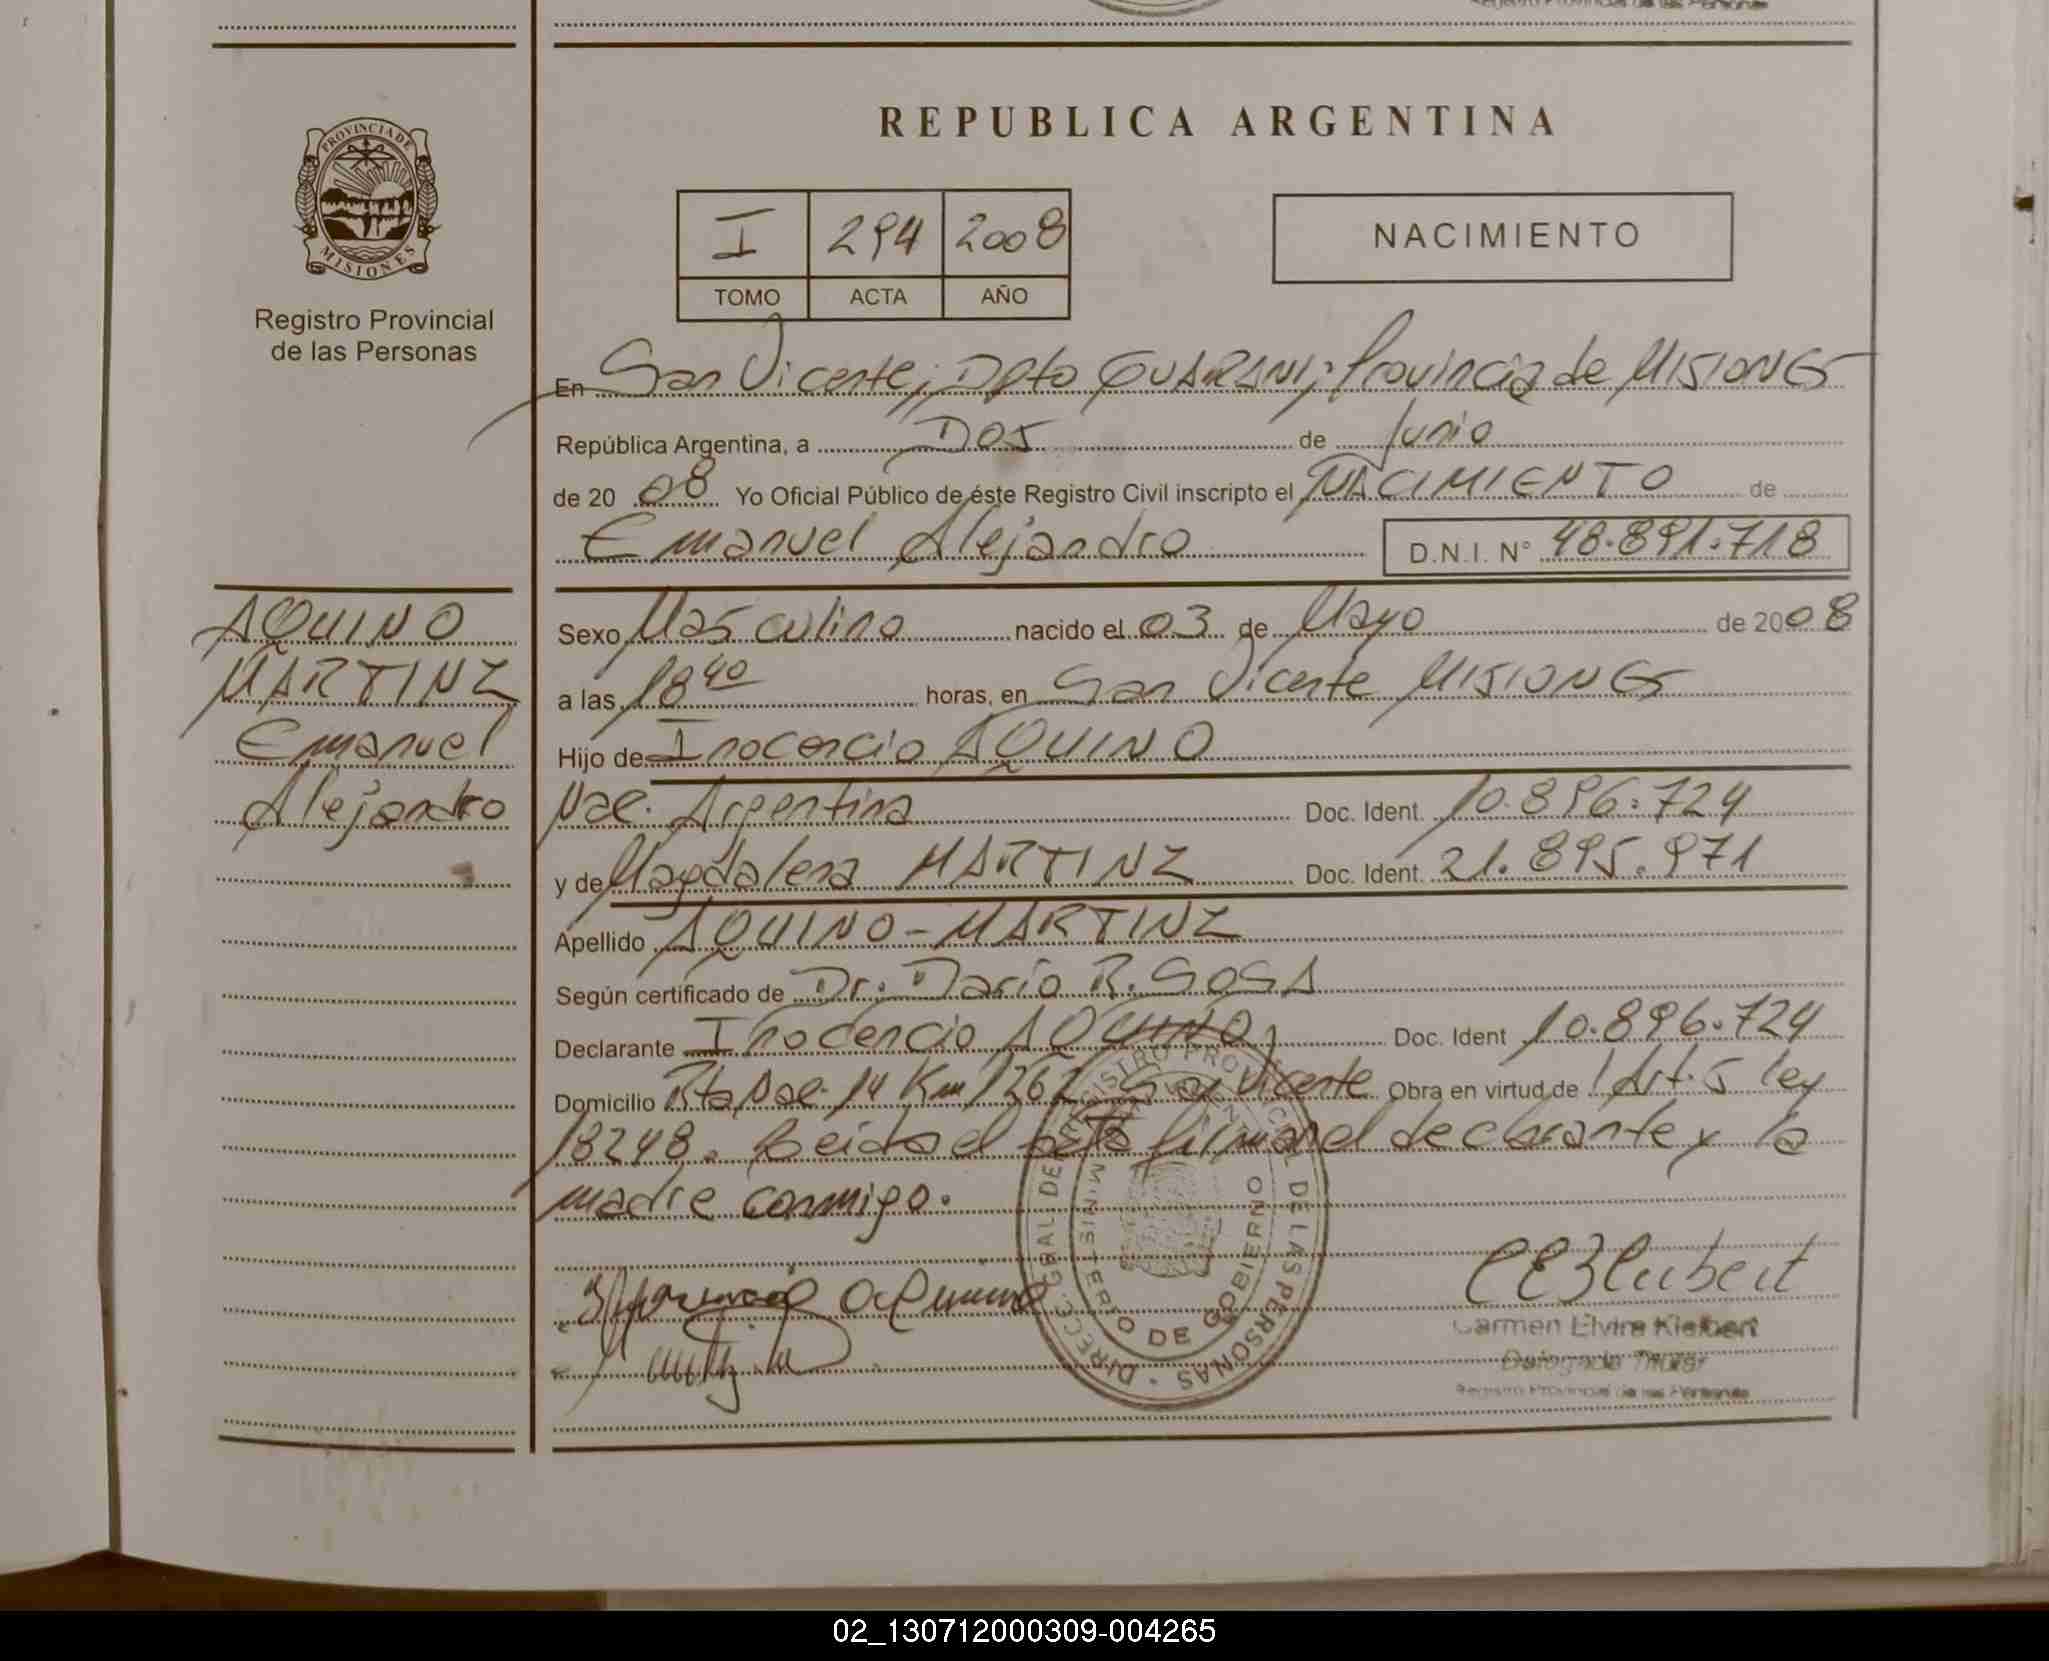 Registro Provincial de las Personas
REPUBLICA ARGENTINA
PROVINCIA DE
MISIONES
Registro Provincial
de las Personas
I 294 2008
TOMO ACTA AÑO
NACIMIENTO
En San Vicente; Dpto GUARANI; Provincia de MISIONES
República Argentina, a Dos de Junio
de 20 08 Yo Oficial Público de éste Registro Civil inscripto el NACIMIENTO de
Emanuel Alejandro D.N.I. N° 48.891.718
AQUINO
MARTINZ
Emanuel
Alejandro
Sexo Masculino nacido el 03 de Mayo de 2008
a las 18 40 horas, en San Vicente MISIONES
Hijo de Inocencio AQUINO
Nac. Argentina Doc. Ident. 10.896.724
y de Magdalena MARTINZ Doc. Ident. 21.895.971
Apellido AQUINO-MARTINZ
Según certificado de Dr. Darío R. SOSA
Declarante Inocencio AQUINO, Doc. Ident 10.896.724
Domicilio Rta Nac. 14 Km 1262 San Vicente Obra en virtud de Art. 5 ley
18248. Leida el acta firman el declarante y la
madre conmigo.
DIRECC. GRAL DE REGISTRO PROVINCIAL DE LAS PERSONAS
MINISTERIO DE GOBIERNO
Carmen Elvira Kleibert
Delegada Titular
Registro Provincial de las Personas
02_130712000309-004265